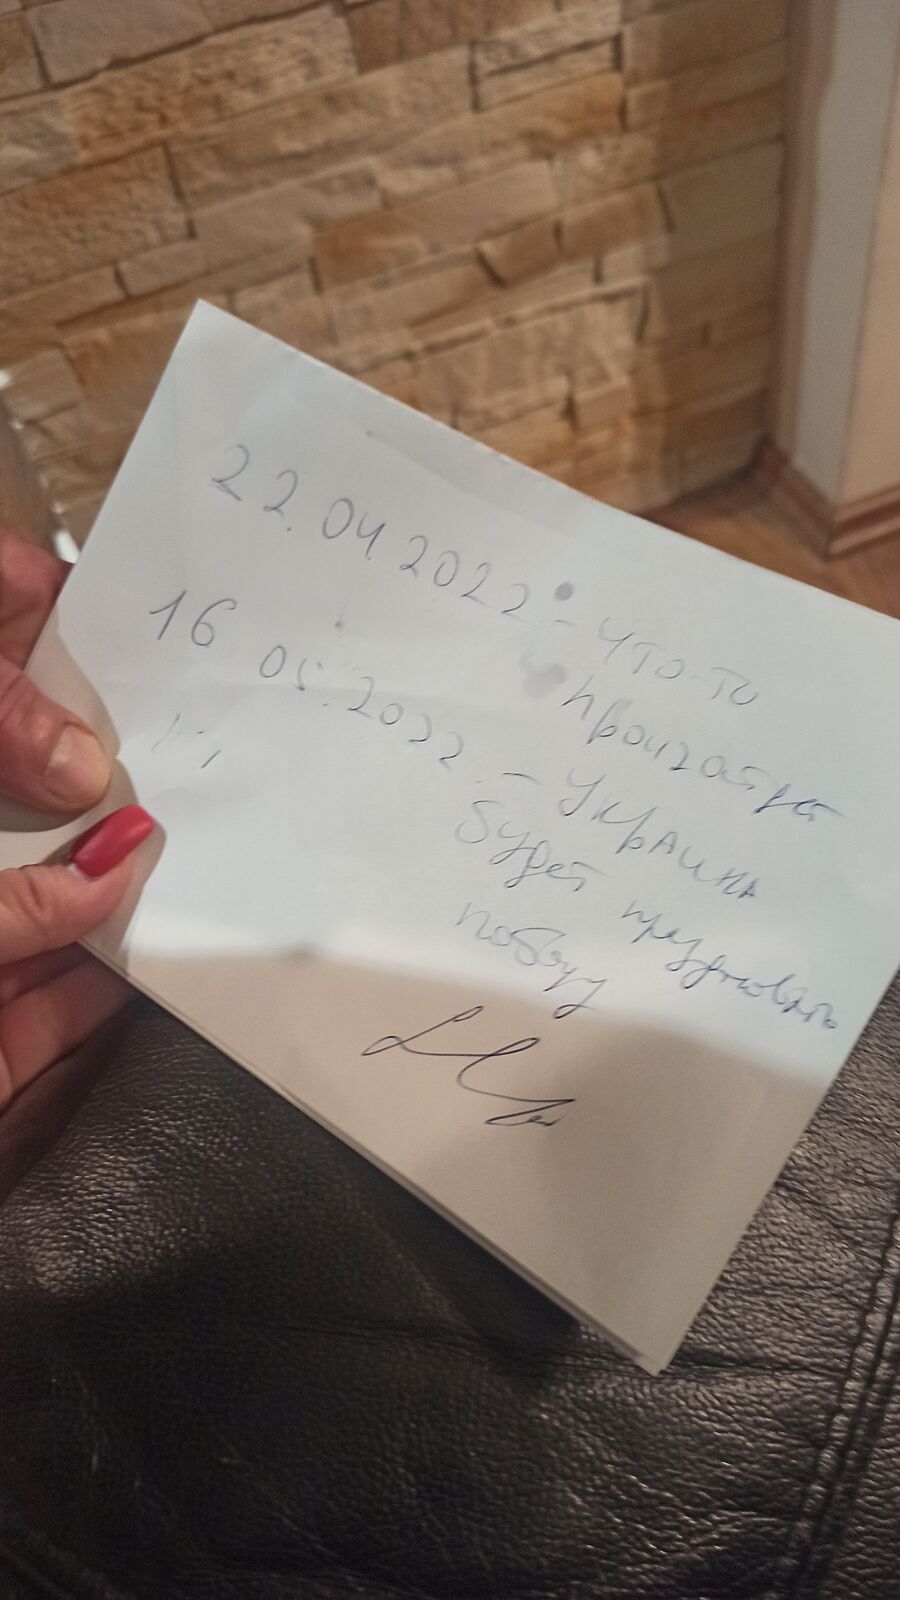 22.04.2022 - что-то
произойдет
16 05.2022 - Украина
будет праздновать
победу